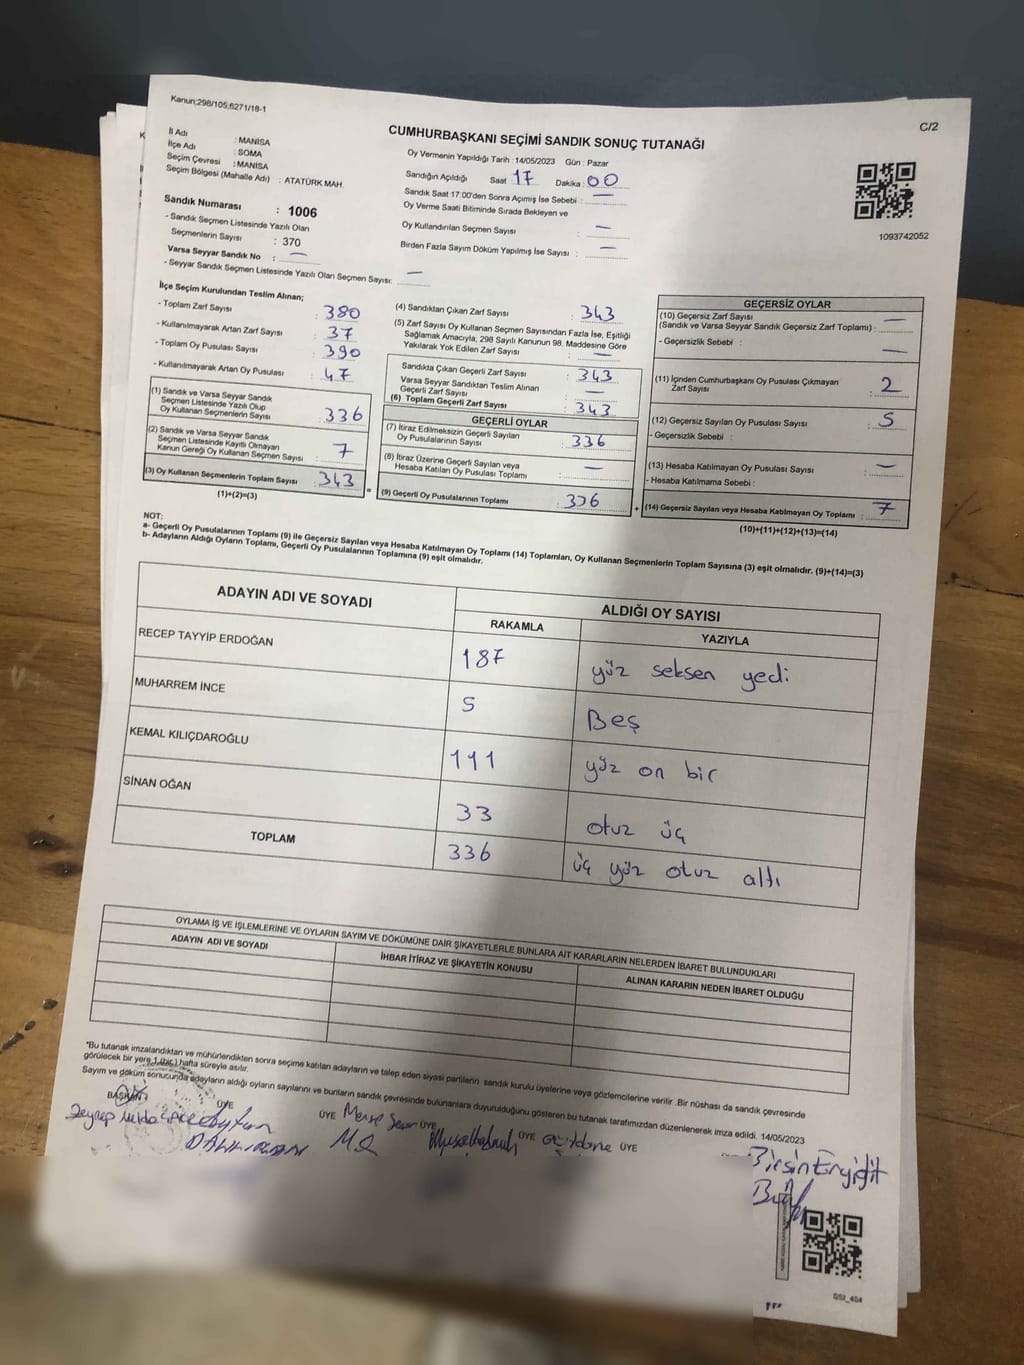 Kanun;298/105,6271/18-1
C/2
CUMHURBAŞKANI SEÇİMİ SANDIK SONUÇ TUTANAĞI
İl Adı : MANİSA
İlçe Adı : SOMA
Seçim Çevresi : MANİSA
Seçim Bölgesi (Mahalle Adı) : ATATÜRK MAH.
Oy Vermenin Yapıldığı Tarih : 14/05/2023 Gün : Pazar
Sandığın Açıldığı Saat : 17 Dakika : 00
Sandık Saat 17:00'den Sonra Açımış İse Sebebi : —
Oy Verme Saati Bitiminde Sırada Bekleyen ve
Oy Kullandırılan Seçmen Sayısı : —
Birden Fazla Sayım Döküm Yapılmış İse Sayısı : —
1093742052
Sandık Numarası : 1006
- Sandık Seçmen Listesinde Yazılı Olan
Seçmenlerin Sayısı : 370
Varsa Seyyar Sandık No : —
- Seyyar Sandık Seçmen Listesinde Yazılı Olan Seçmen Sayısı: —
İlçe Seçim Kurulundan Teslim Alınan;
- Toplam Zarf Sayısı : 380
- Kullanılmayarak Artan Zarf Sayısı : 37
- Toplam Oy Pusulası Sayısı : 390
- Kullanılmayarak Artan Oy Pusulası : 47
(1) Sandık ve Varsa Seyyar Sandık
Seçmen Listesinde Yazılı Olup
Oy Kullanan Seçmenlerin Sayısı : 336
(2) Sandık ve Varsa Seyyar Sandık
Seçmen Listesinde Kayıtlı Olmayan
Kanun Gereği Oy Kullanan Seçmen Sayısı : 7
(3) Oy Kullanan Seçmenlerin Toplam Sayısı : 343
(1)+(2)=(3)
(4) Sandıktan Çıkan Zarf Sayısı : 343
(5) Zarf Sayısı Oy Kullanan Seçmen Sayısından Fazla İse, Eşitliği
Sağlamak Amacıyla, 298 Sayılı Kanunun 98. Maddesine Göre
Yakılarak Yok Edilen Zarf Sayısı : —
Sandıkta Çıkan Geçerli Zarf Sayısı : 343
Varsa Seyyar Sandıktan Teslim Alınan
Geçerli Zarf Sayısı : —
(6) Toplam Geçerli Zarf Sayısı : 343
GEÇERLİ OYLAR
(7) İtiraz Edilmeksizin Geçerli Sayılan
Oy Pusulalarının Sayısı : 336
(8) İtiraz Üzerine Geçerli Sayılan veya
Hesaba Katılan Oy Pusulası Toplamı : —
(9) Geçerli Oy Pusulalarının Toplamı : 336
GEÇERSİZ OYLAR
(10) Geçersiz Zarf Sayısı
(Sandık ve Varsa Seyyar Sandık Geçersiz Zarf Toplamı) : —
- Geçersizlik Sebebi : —
(11) İçinden Cumhurbaşkanı Oy Pusulası Çıkmayan
Zarf Sayısı : 2
(12) Geçersiz Sayılan Oy Pusulası Sayısı : 5
- Geçersizlik Sebebi :
(13) Hesaba Katılmayan Oy Pusulası Sayısı : —
- Hesaba Katılmama Sebebi :
(14) Geçersiz Sayılan veya Hesaba Katılmayan Oy Toplamı : 7
(10)+(11)+(12)+(13)=(14)
NOT:
a- Geçerli Oy Pusulalarının Toplamı (9) ile Geçersiz Sayılan veya Hesaba Katılmayan Oy Toplamı (14) Toplamları, Oy Kullanan Seçmenlerin Toplam Sayısına (3) eşit olmalıdır. (9)+(14)=(3)
b- Adayların Aldığı Oyların Toplamı, Geçerli Oy Pusulalarının Toplamına (9) eşit olmalıdır.
ADAYIN ADI VE SOYADI
ALDIĞI OY SAYISI
RAKAMLA YAZIYLA
RECEP TAYYİP ERDOĞAN 187 yüz seksen yedi
MUHARREM İNCE 5 Beş
KEMAL KILIÇDAROĞLU 111 yüz on bir
SİNAN OĞAN 33 otuz üç
TOPLAM 336 üç yüz otuz altı
OYLAMA İŞ VE İŞLEMLERİNE VE OYLARIN SAYIM VE DÖKÜMÜNE DAİR ŞİKAYETLERLE BUNLARA AİT KARARLARIN NELERDEN İBARET BULUNDUKLARI
ADAYIN ADI VE SOYADI İHBAR İTİRAZ VE ŞİKAYETİN KONUSU ALINAN KARARIN NEDEN İBARET OLDUĞU
"Bu tutanak imzalandıktan ve mühürlendikten sonra seçime katılan adayların ve talep eden siyasi partilerin sandık kurulu üyelerine veya gözlemcilerine verilir .Bir nüshası da sandık çevresinde
görülecek bir yere 1 (bir ) hafta süreyle asılır.
Sayım ve döküm sonucunda adayların aldığı oyların sayılarını ve bunların sandık çevresinde bulunanlara duyurulduğunu gösteren bu tutanak tarafımızdan düzenlenerek imza edildi. 14/05/2023
BAŞKAN ÜYE ÜYE ÜYE ÜYE ÜYE
Zeynep
Birsin Eryiğit
SSI_404